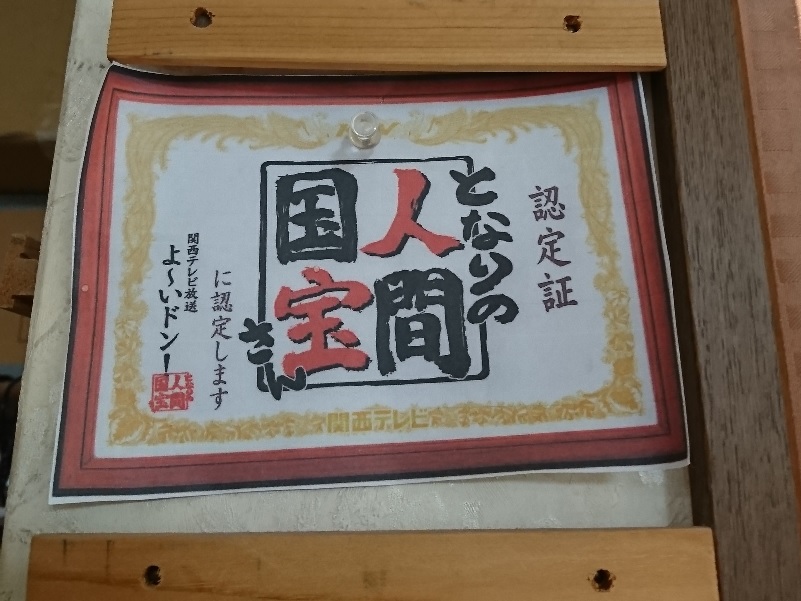 認定証
となりの
人間
国宝
さん
に認定します
関西テレビ放送
よ〜いドン！
となりの
人間
国宝
関西テレビ